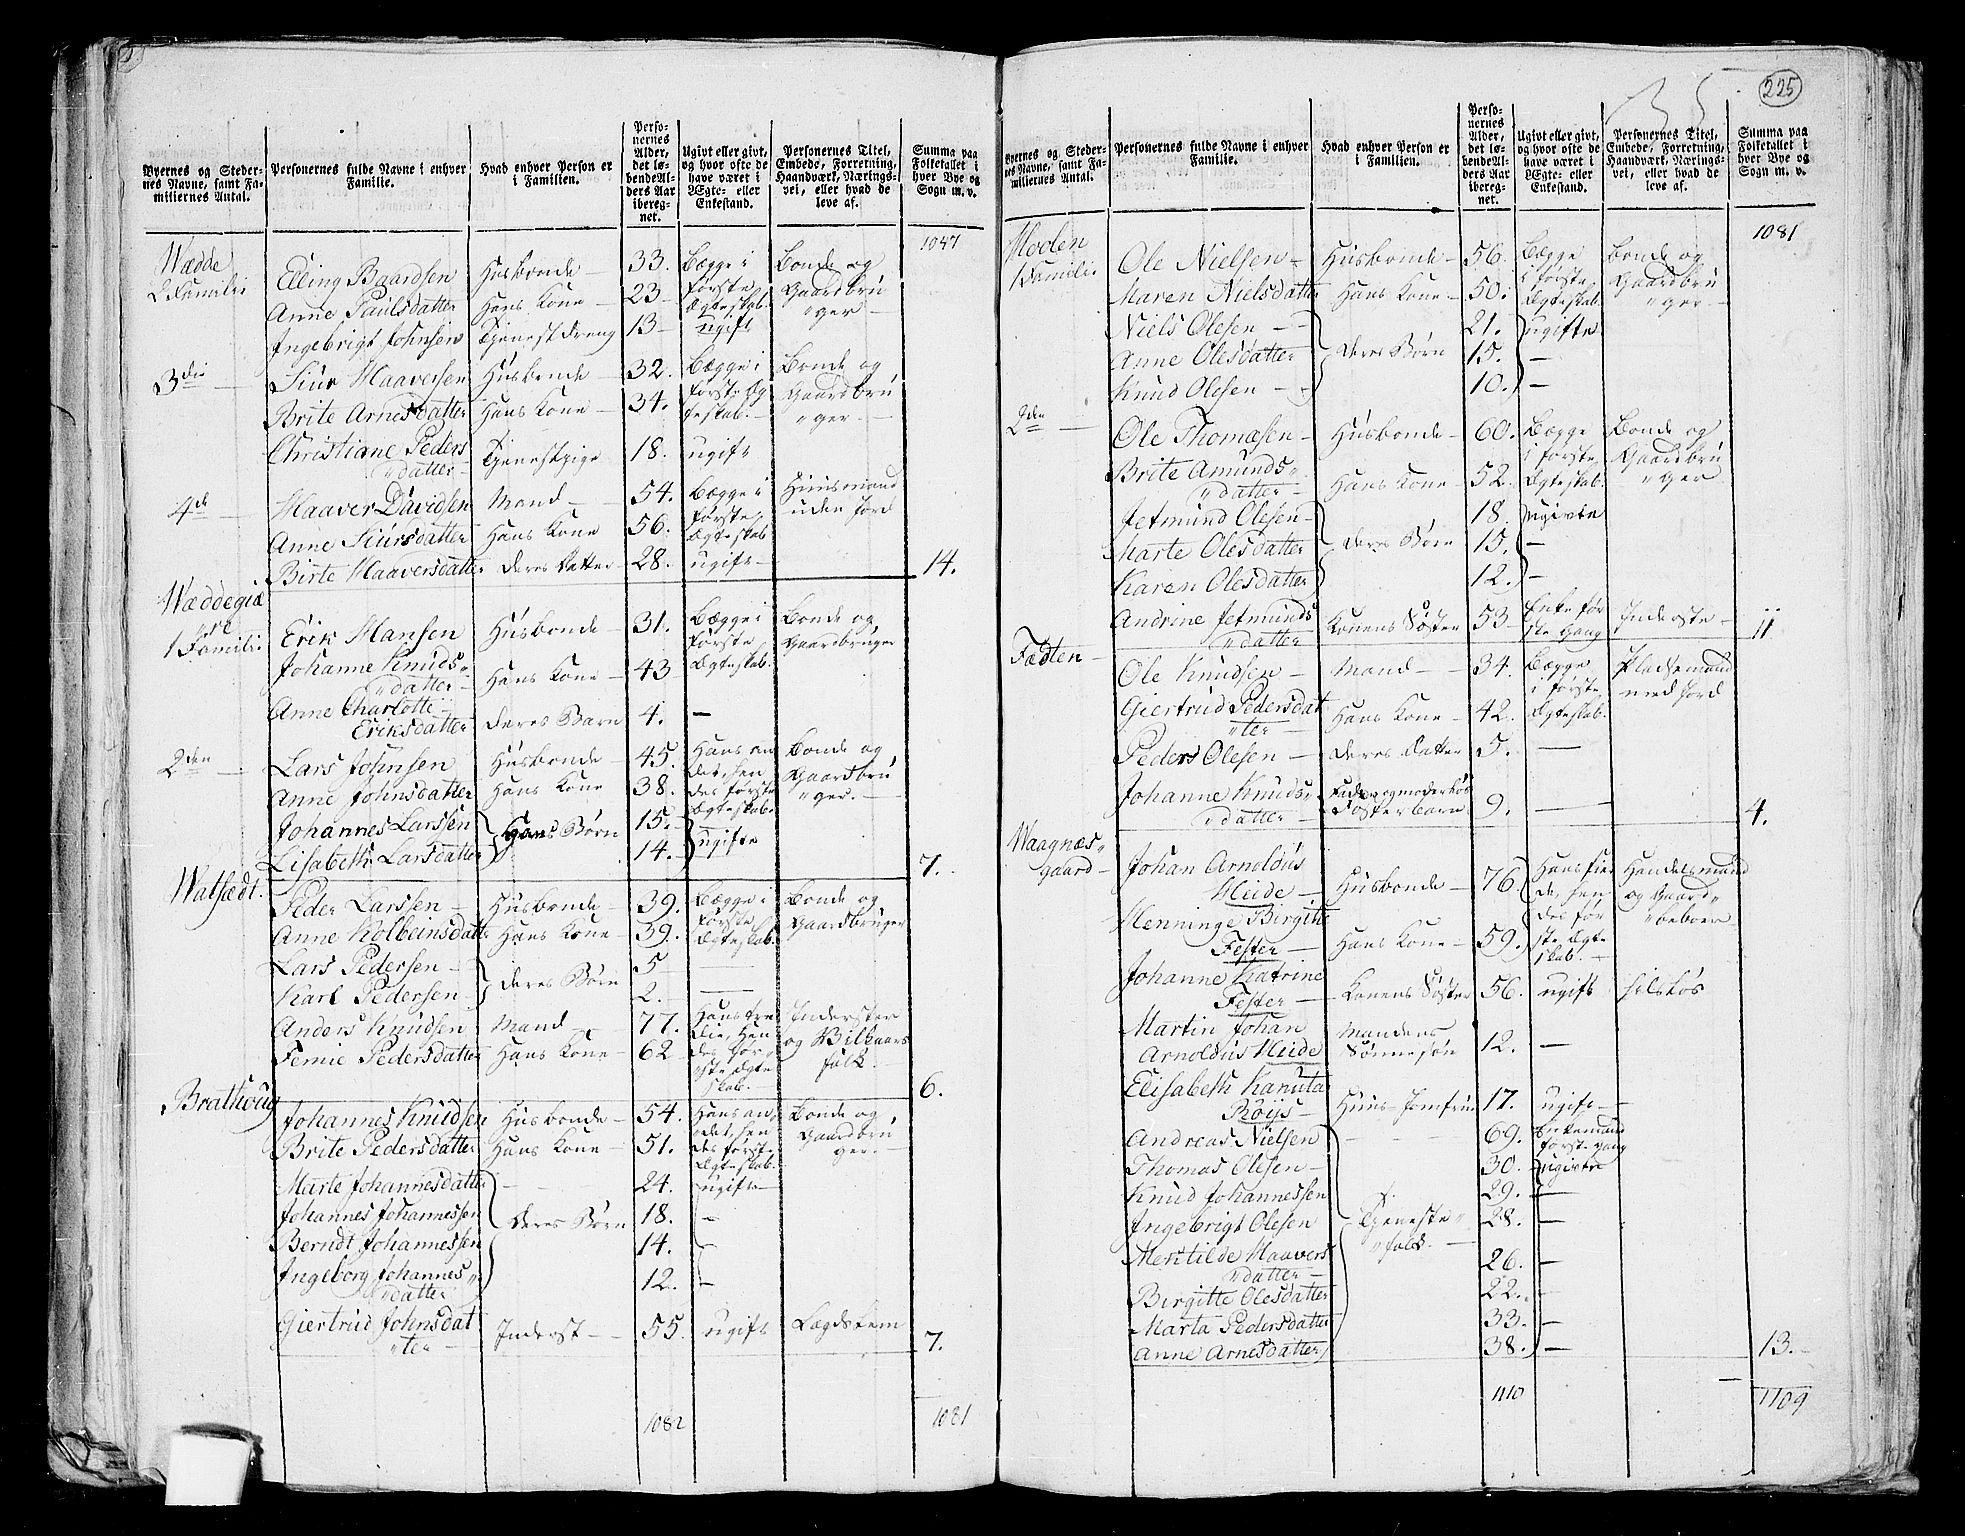 225
Byernes og Steder- nes Navne, samt Fa- miliernes Antal. | Personernes fulde Navne i enhver Familie. | Hvad enhver Person er i Familien. | Perso- nernes Alder, det lø- bende Al- ders Aar iberegnet. | Ugivt eller givt, og hvor ofte de have været i Ægte- eller Enkestand. | Personernes Titel, Embede, Forretning, Haandværk, Nærings- vei, eller hvad de leve af. | Summa paa Folketallet i hver Bye og Sogn m. v.
1047
Wædde 2 Familie | Elling Baardsen | Husbonde | 33. | Begge i første Ægteskab | Bonde og Gaardbru "ger
Anne Paulsdatter | Hans Kone | 23
Ingebrigt Johnsen | Tjenestdreng | 13 | ugift
3die | Siur Haaversen | Husbonde | 32. | Begge i første Æg teskab. | Bonde og Gaardbru "ger
Brite Arnesdatter | Hans Kone | 34.
Christiane Peders "datter | Tjenestpige | 18. | ugift
4de | Haaver Davidsen | Mand | 54. | Begge i første Ægteskab | Huusmand uden Jord
Anne Siursdatter | Hans Kone | 56.
Birte Haaversdatter | Deres Datter | 28. | ugift | 14.
Wæddegiæ 1 Familie | Erik Hansen | Husbonde | 31. | Begge i første Ægteskab. | Bonde og Gaardbruger
Johanne Knuds "datter | Hans Kone | 43
Anne Charlotte Eriksdatter | Deres Barn | 4. | —
2den | Lars Johnsen | Husbonde | 45. | Hans an det, hen des første Ægteskab. | Bonde og Gaardbru "ger.
Anne Johnsdatter | Hans Kone | 38.
Johannes Larssen | Hans Børn | 15. | ugifte
Lisabeth Larsdatter | 14. | 7.
Watsædt. | Peder Larssen | Husbonde | 39. | Begge i første Ægteskab. | Bonde og Gaardbruger
Anne Kolbeinsdatter | Hans Kone | 39.
Lars Pedersen | Deres Børn | 5 | —
Karl Pedersen | 2. | —
Anders Knudsen | Mand | 77. | Hans tre die, Hen des før ste Ægte skab. | Inderster og Vilkaars folk.
Femie Pedersdatter | Hans Kone | 62 | 6.
Brathoug | Johannes Knudsen | Husbonde | 54. | Hans an det, hen des første Ægteskab. | Bonde og Gaardbru ger.
Brite Pedersdatter | Hans Kone | 51.
Marte Johannesdatter | Deres Børn | 24. | ugift
Johannes Johannessen | 18. | —
Berndt Johannessen | 14. | —
Ingeborg Johannes "datter | 12. | —
Giertrud Johnsdat "ter | Inderst | 55. | ugift | Lægdslem | 7.
1082 | 1081
Byernes og Steder- nes Navne, samt Fa- miliernes Antal. | Personernes fulde Navne i enhver Familie. | Hvad enhver Person er i Familien. | Perso- nernes Alder, det lø- bende Al- ders Aar iberegnet. | Ugivt eller givt, og hvor ofte de have været i Ægte- eller Enkestand. | Personernes Titel, Embede, Forretning, Haandværk, Nærings- vei, eller hvad de leve af. | Summa paa Folketallet i hver Bye og Sogn m. v.
1081
Moden 1 Familie | Ole Nielsen | Husbonde | 56. | Begge i første Ægteskab. | Bonde og Gaardbru "ger
Maren Nielsdatter | Hans Kone | 50.
Niels Olesen | Deres Børn | 21. | ugifte
Anne Olesdatter | 15. | —
Knud Olesen | 10. | —
2den | Ole Thomasen | Husbonde | 60. | Begge i første Ægteskab. | Bonde og Gaardbru "ger
Brite Amunds "datter | Hans Kone | 52.
Jetmund Olesen | Deres Børn | 18. | ugivte
Marte Olesdatter | 15. | —
Karen Olesdatter | 12. | —
Andrine Jetmunds "datter | Konens Søster | 53 | Enke før ste Gang | Inderste | 11
Fædten | Ole Knudsen | Mand | 34. | Begge i første Ægteskab. | Pladsemand med Jord
Giertrud Pedersdat "ter | Hans Kone | 42.
Peders Olesen | Deres Datter | 5. | —
Johanne Knuds "datter | Fader og moderløs Fosterbarn | 9. | — | 4.
Waagnæs" gaard | Johan Arnoldus Heide | Husbonde | 76. | Hans fier de, hen des før ste Ægte skab. | Handelsmand og Gaard" "beboer
Henninge Birgitte Fester | Hans Kone | 59.
Johanne Katrine Fester | Konens Søster | 56. | ugift
Martin Johan Arnoldus Heide | Mandens Sønnesøn | 12. | —
Elisabeth Kanuta Röijs | Huus-Jomfrue | 17. | ugift
Andreas Nielsen | Tjeneste" "folk. | 69. | Enkemand første gang
Thomas Olesen | 30. | ugivte
Knud Johannessen | 29. | —
Ingebrigt Olesen | 28. | —
Mentilde Haavers "datter | 26. | —
Birgitte Olesdatter | 22. | —
Marta Pedersdatter | 33. | —
Anne Arnesdatter | 38. | — | 13.
1110 | 1109